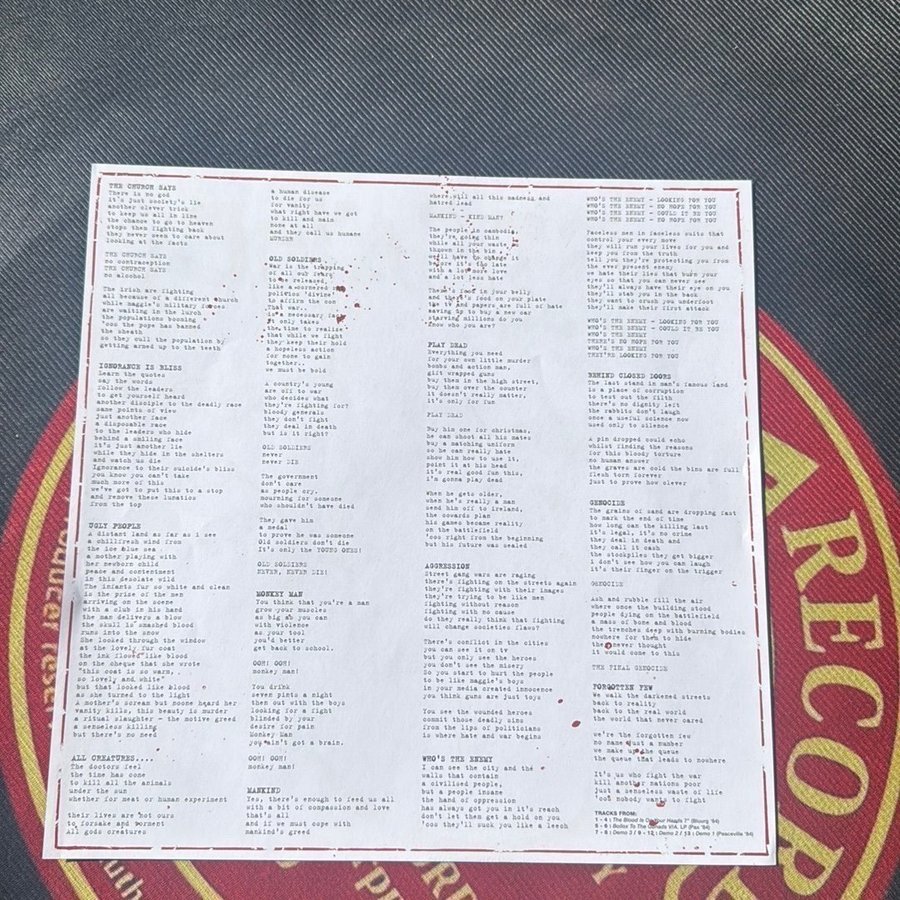 THE CHURCH SAYS
There is no god
it's just society's lie
another clever trick
to keep us all in line
the chance to go to heaven
stops them fighting back
they never seem to care about
looking at the facts
THE CHURCH SAYS
no contraception
THE CHURCH SAYS
no alcohol
The irish are fighting
all because of a different church
while maggie's military forces
are waiting in the lurch
the populations booming
'cos the pope has banned
the sheath
so they cull the population by
getting armed up to the teeth
IGNORANCE IS BLISS
Learn the quotes
say the words
follow the leaders
to get yourself heard
another disciple to the deadly race
same points of view
just another face
a disposable race
to the leaders who hide
behind a smiling face
it's just another lie
while they hide in the shelters
and watch us die
Ignorance to their suicide's bliss
you know you can't take
much more of this
we've got to put this to a stop
and remove these lunatics
from the top
UGLY PEOPLE
A distant land as far as i see
a chillfresh wind from
the ice blue sea
a mother playing with
her newborn child
peace and contentment
in this desolate wild
The infants fur so white and clean
is the prize of the men
arriving on the scene
with a club in his hand
the man delivers a blow
the skull is smashed blood
runs into the snow
She looked through the window
at the lovely fur coat
the ink flowed like blood
on the cheque that she wrote
"this coat is so warm,
so lovely and white"
but that looked like blood
as she turned to the light
A mother's scream but noone heard her
vanity kills, this beauty is murder
a ritual slaughter - the motive greed
a senseless killing
but there's no need
ALL CREATURES....
The doctors feel
the time has come
to kill all the animals
under the sun
whether for meat or human experiment
their lives are not ours
to forsake and torment
All gods creatures
a human disease
to die for us
for vanity
what right have we got
to kill and maim
none at all
and they call us humane
MURDER
OLD SOLDIERS
War is the trapping
of all our fears
to be released,
like a cornered
politics 'divine'
to affirm the con
That war..
is a necessary
It only takes
the time to realise
that while we fight
they keep their hold
a hopeless action
for none to gain
together..
we must be bold
A country's young
are off to war
who decides what
they're fighting for?
bloody generals
they don't fight
they deal in death
but is it right?
OLD SOLDIERS
never
never DIE
The government
don't care
as people cry,
mourning for someone
who shouldn't have died
They gave him
a medal
to prove he was someone
Old soldiers don't die
It's only the YOUNG ONES!
OLD SOLDIERS
NEVER, NEVER DIE!
MONKEY MAN
You think that you're a man
grow your muscles
as big as you can
with violence
as your tool
you'd better
get back to school.
OOH! OOH!
monkey man!
You drink
seven pints a night
then out with the boys
looking for a fight
blinded by your
desire for pain
Monkey Man
you ain't got a brain.
OOH! OOH!
monkey man!
MANKIND
Yes, there's enough to feed us all
with a bit of compassion and love
that's all
and if we must cope with
mankind's greed
where will all this madness and
hatred lead
MANKIND - KIND MAN?
The people in cambodia,
they're going thin
while all your waste is
thrown in the bin
we'll have to change it
before it's too late
with a lot more love
and a lot less hate
There's food in your belly
and there's food on your plate
the tv and papers are full of hate
saving up to buy a new car
starving millions do you
know who you are?
PLAY DEAD
Everything you need
for your own little murder
bombs and action man,
gift wrapped guns
buy them in the high street,
buy them over the counter
it doesn't really matter,
it's only for fun
PLAY DEAD
Buy him one for christmas,
he can shoot all his mates
buy a matching uniform
so he can really hate
show him how to use it,
point it at his head
it's real good fun this,
i'm gonna play dead
When he gets older,
when he's really a man
send him off to ireland,
the cowards plan
his games became reality
on the battlefield
'cos right from the beginning
but his future was sealed
AGGRESSION
Street gang wars are raging
there's fighting on the streets again
they're fighting with their images
they're trying to be like men
fighting without reason
fighting with no cause
do they really think that fighting
will change societies flaws?
There's conflict in the cities
you can see it on tv
but you only see the heroes
you don't see the misery
So you start to hurt the people
to be like maggie's boys
in your media created innocence
you think guns are just toys
You see the wounded heroes
commit those deadly sins
from the lips of politicians
is where hate and war begins
WHO'S THE ENEMY
I can see the city and the
walls that contain
a civilised people,
but a people insane
the hand of oppression
has always got you in it's reach
don't let them get a hold on you
'cos they'll suck you like a leech
WHO'S THE ENEMY - LOOKING FOR YOU
WHO'S THE ENEMY - NO HOPE FOR YOU
WHO'S THE ENEMY - COULD IT BE YOU
WHO'S THE ENEMY - NO HOPE FOR YOU
Faceless men in faceless suits that
control your every move
they will run your lives for you and
keep you from the truth
tell you they're protecting you from
the ever present enemy
we hate their lies that burn your
eyes so that you can never see
they'll always have their eye on you
they'll stab you in the back
they want to crush you underfoot
they'll make their first attack
WHO'S THE ENEMY - LOOKING FOR YOU
WHO'S THE ENEMY - COULD IT BE YOU
WHO'S THE ENEMY
THERE'S NO HOPE FOR YOU
WHO'S THE ENEMY
THEY'RE LOOKING FOR YOU
BEHIND CLOSED DOORS
The last stand in man's famous land
is a place of corruption
to test out the filth
there's no dignity left
the rabbits don't laugh
once a useful science now
used only to silence
A pin dropped could echo
whilst finding the reasons
for this bloody torture
no human answer
the graves are cold the bins are full
flesh torn forever
just to prove how clever
GENOCIDE
The grains of sand are dropping fast
to mark the end of time
how long can the killing last
it's legal, it's no crime
they deal in death and
they call it cash
the stockpiles they get bigger
i don't see how you can laugh
it's their finger on the trigger
GENOCIDE
Ash and rubble fill the air
where once the building stood
people dying on the battlefield
a mass of bone and blood
the trenches deep with burning bodies
nowhere for them to hide
they never thought
it would come to this
THE FINAL GENOCIDE
FORGOTTEN FEW
We walk the darkened streets
back to reality
back to the real world
the world that never cared
we're the forgotten few
no name just a number
we make up the queue
the queue that leads to nowhere
It's us who fight the war
kill another nations poor
just a senseless waste of life
'cos nobody wants to fight
TRACKS FROM:
1 - 4: The Blood Is On Your Hands 7" (Bluurg '84)
5 - 6: Bollox To The Gonads V/A. LP (Pax '84)
7 - 8: Demo 3 / 9 - 12: Demo 2 / 13: Demo 1 (Peaceville '84)
A RECORD